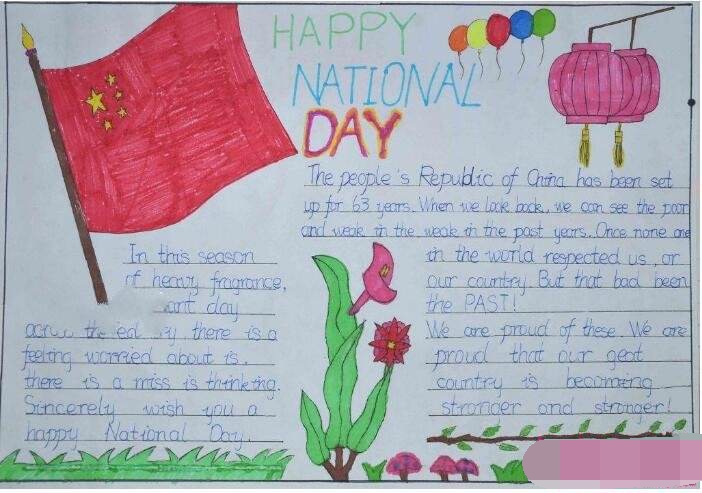 HAPPY
NATIONAL
DAY
The people's Republic of China has been set
up for 63 years. When we look back, we can see the poor
and weak in the weak in the past years. Once none one
in the world respected us, or
our country. But that bad been
the PAST!
We are proud of these. We are
proud that our geat
country is becoming
stronger and stronger!
In this season
of heavy fragrance,
day
there is a
feeling worried about is,
there is a miss is thinking.
Sincerely wish you a
happy National Day.